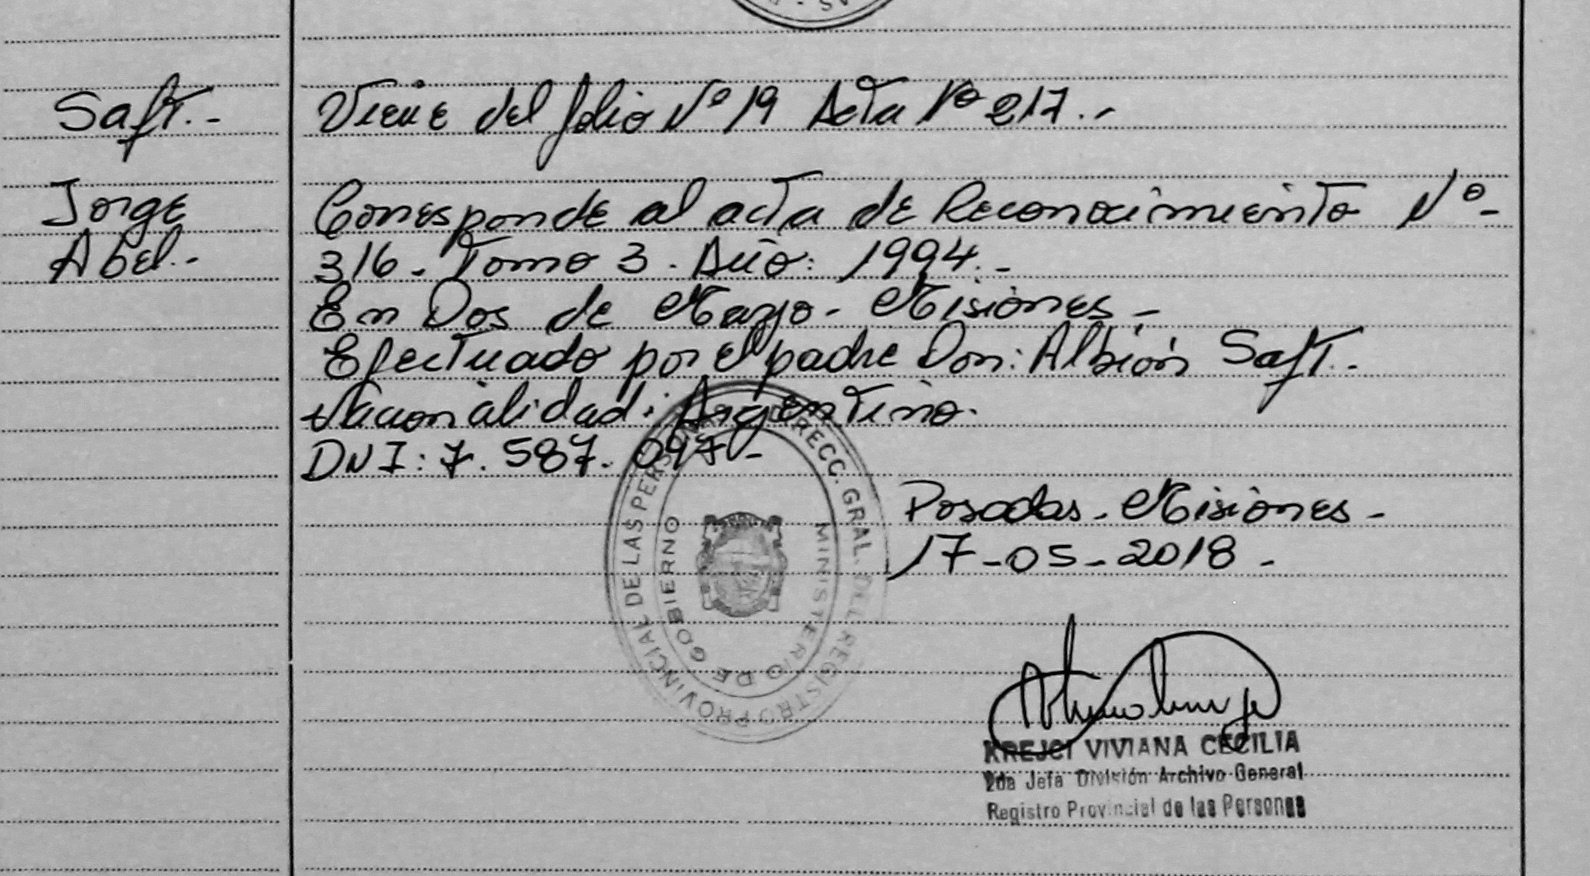 AS -
Saft.-
Viene del folio Nº 19 Acta Nº 217.-
Jorge
Corresponde al acta de Reconocimiento Nº-
Abel.-
316. Tomo 3. Año: 1994.-
En Dos de Mayo- Misiones-
Efectuado por el padre Don: Albión Saft.
Nacionalidad: Argentino.
DNI: 7. 587. 097-
Posadas- Misiones-
17-05-2018-
DIRECC. GRAL. DEL REGISTRO PROVINCIAL DE LAS PERSONAS
MINISTERIO DE GOBIERNO
KREJCI VIVIANA CECILIA
2da Jefa División Archivo General
Registro Provincial de las Personas